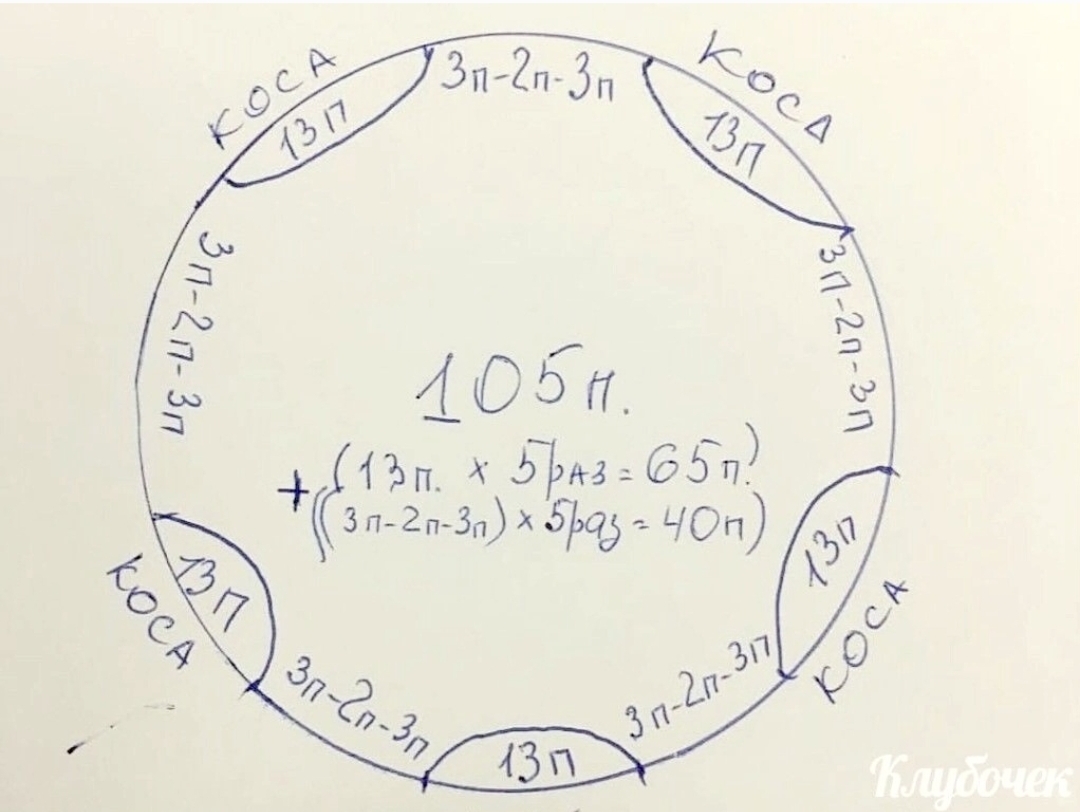 КОСА
13п
3п-2п-3п
КОСА
13п
3п-2п-3п
3п-2п-3п
105п.
(13п. х 5раз = 65п.)
+((3п-2п-3п) х 5раз = 40п)
13п
КОСА
13п
КОСА
3п-2п-3п
3п-2п-3п
13п
Клубочек